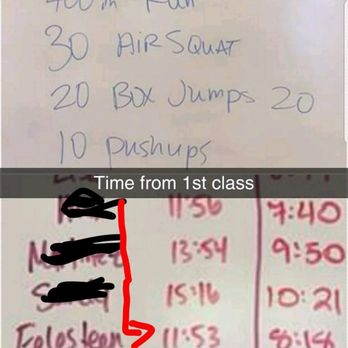 400m Run
30 AIR SQUAT
20 Box Jumps 20
10 pushups
Time from 1st class
11:56 7:40
13:54 9:50
15:16 10:21
11:53 8:18